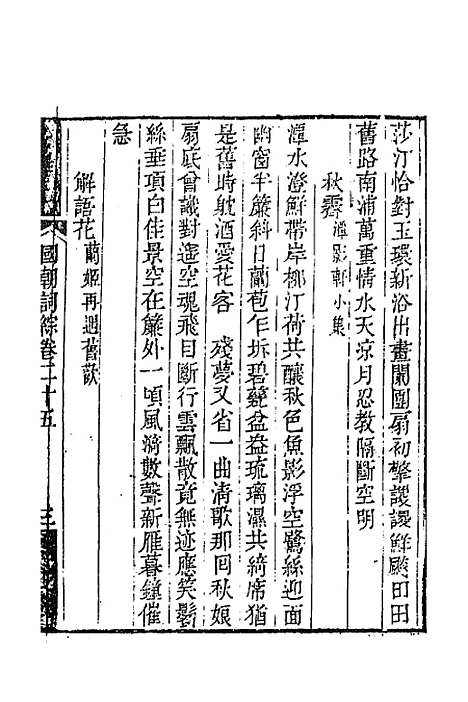 莎汀恰對玉環新浴出畫闌團扇初擎謖謖鮮飈田田
舊路南浦萬重情水天涼月忍教隔斷空明
秋霽潭影軒小集
潭水澄鮮帶岸柳汀荷共釀秋色魚影浮空鷺絲迎面
幽窗半簾斜日蘭苞乍坼碧甆盆益琉璃濕共綺席猶
是舊時躭酒愛花客　殘夢又省一曲清歌那回秋娘
扇底曾識對遥空魂飛目斷行雲飄散竟無迹應笑鬢
絲垂項白佳景空在簾外一頃風漪數聲新雁暮鐘催
急
解語花蘭姬再遇舊歡
國朝詞綜卷二十五
三